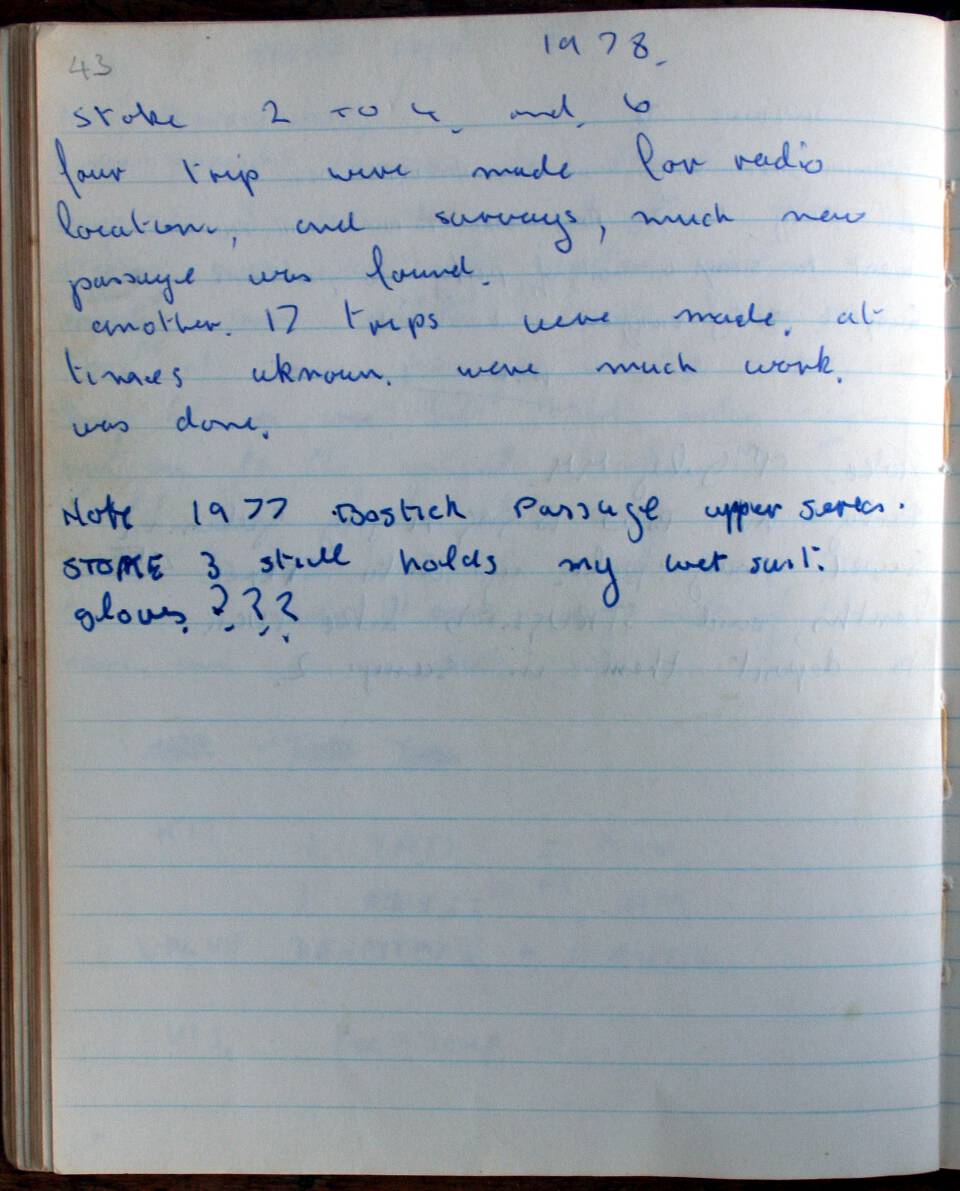 43
1978.
Stoke 2 TO 4. and. 6
four trip were made for radio
location, and survays, much new
passage was found.
another. 17 trips were made. at
times uknown. were much work.
was done.
Note 1977 Bostick Passage upper series.
STOKE 3 still holds my wet suit.
gloves ???